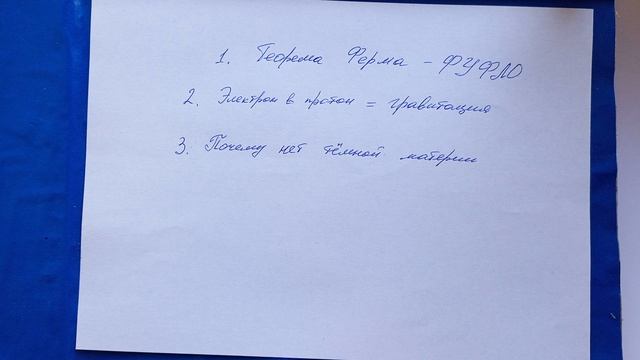 1. Теорема Ферма – ФУФЛО
2. Электрон в протон = гравитация
3. Почему нет тёмной материи